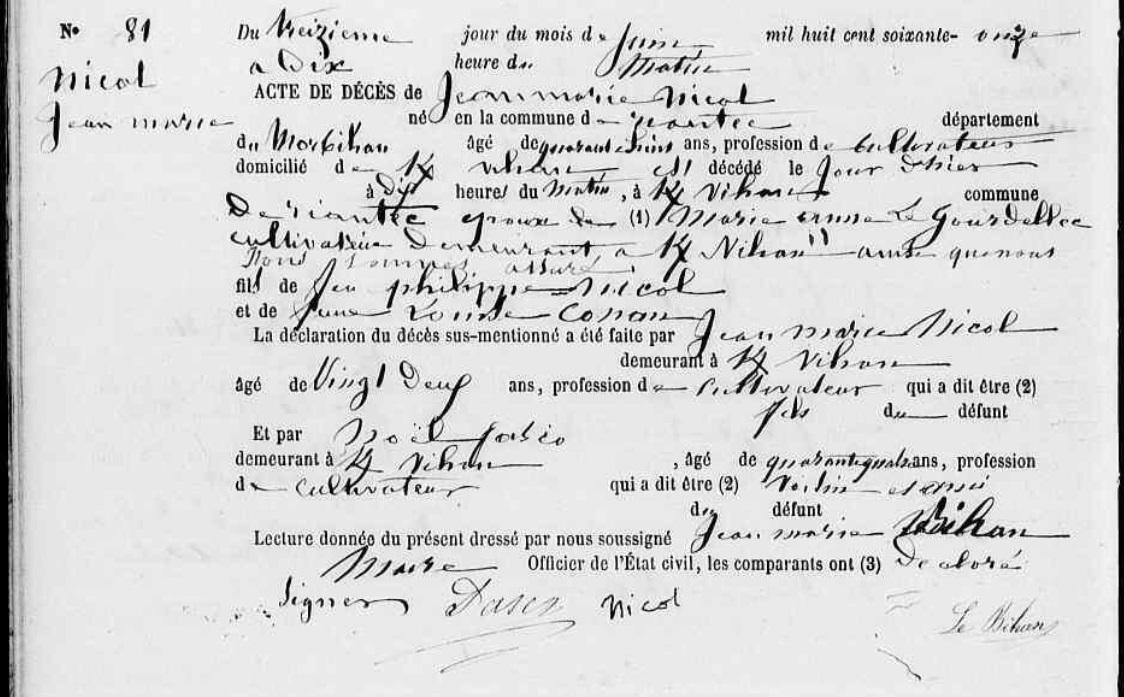 No 81 Du treizieme jour du mois de Juin mil huit cent soixante- onze
Nicol a Dix heure du Matin
Jean marie ACTE DE DÉCÈS de Jean marie Nicol
né en la commune de riantec département
du Morbihan âgé de quarante huit ans, profession de cultivateur
domicilié de Kr vihan est décédé le Jour d'hier
à Dix heures du Matin, à Kr Vihan commune
De riantec epoux de (1) Marie anne Le Gourdellec
cultivatrice Demeurant a Kr Vihan ainsi que nous
Nous sommes assuré
fils de feu philippe Nicol
et de feue Louise Conan
La déclaration du décès sus-mentionné a été faite par Jean marie Nicol
demeurant à Kr Vihan
âgé de Vingt Deux ans, profession de cultivateur qui a dit être (2)
fils du défunt
Et par Noël
demeurant à Kr Vihan, âgé de quarante quatre ans, profession
de cultivateur qui a dit être (2) Voisin et ami
du défunt
Lecture donnée du présent dressé par nous soussigné Jean marie Bihan
Maire Officier de l'État civil, les comparants ont (3) Declaré
Signer Nicol
Le Bihan